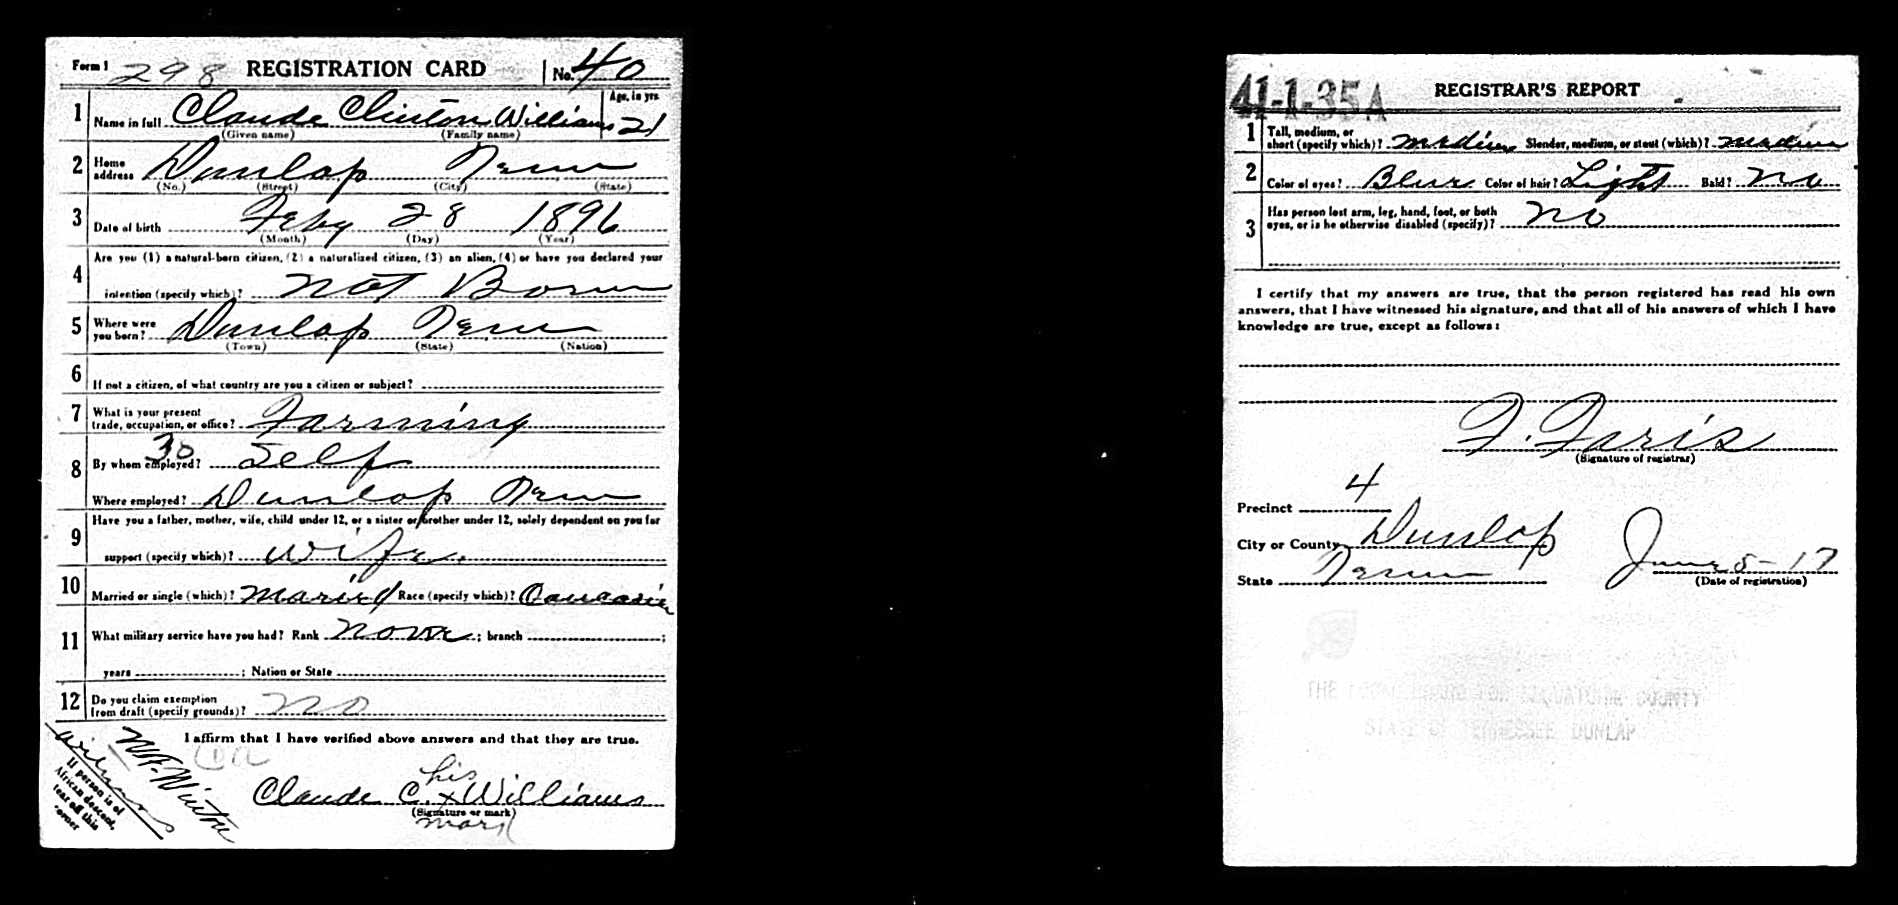 Form 1 298 REGISTRATION CARD No. 40
1 Name in full Claude Clinton Williams Age, in yrs. 21
(Given name) (Family name)
2 Home address Dunlap Tenn
(No.) (Street) (City) (State)
3 Date of birth Feby 28 1896
(Month) (Day) (Year)
4 Are you (1) a natural-born citizen, (2) a naturalized citizen, (3) an alien, (4) or have you declared your
intention (specify which)? Nat Born
5 Where were you born? Dunlap Tenn
(Town) (State) (Nation)
6 If not a citizen, of what country are you a citizen or subject?
7 What is your present trade, occupation, or office? Farming
30
8 By whom employed? Self
Where employed? Dunlap Tenn
9 Have you a father, mother, wife, child under 12, or a sister or brother under 12, solely dependent on you for
support (specify which)? Wife.
10 Married or single (which)? Maried Race (specify which)? Caucasien
11 What military service have you had? Rank None ; branch ;
years ; Nation or State
12 Do you claim exemption from draft (specify grounds)? No
I affirm that I have verified above answers and that they are true.
his
Claude C. x Williams
(Signature or mark)
mark
Witness
W.F. Winton
If person is of
African descent,
tear off this
corner
41-1-35A REGISTRAR'S REPORT
1 Tall, medium, or short (specify which)? Medium Slender, medium, or stout (which)? Medium
2 Color of eyes? Blue Color of hair? Light Bald? No
3 Has person lost arm, leg, hand, foot, or both
eyes, or is he otherwise disabled (specify)? No
I certify that my answers are true, that the person registered has read his own
answers, that I have witnessed his signature, and that all of his answers of which I have
knowledge are true, except as follows:
F. Faris
(Signature of registrar)
Precinct 4
City or County Dunlap
State Tenn June 5-17
(Date of registration)
THE LOCAL BOARD FOR COUNTY
STATE OF TENNESSEE DUNLAP